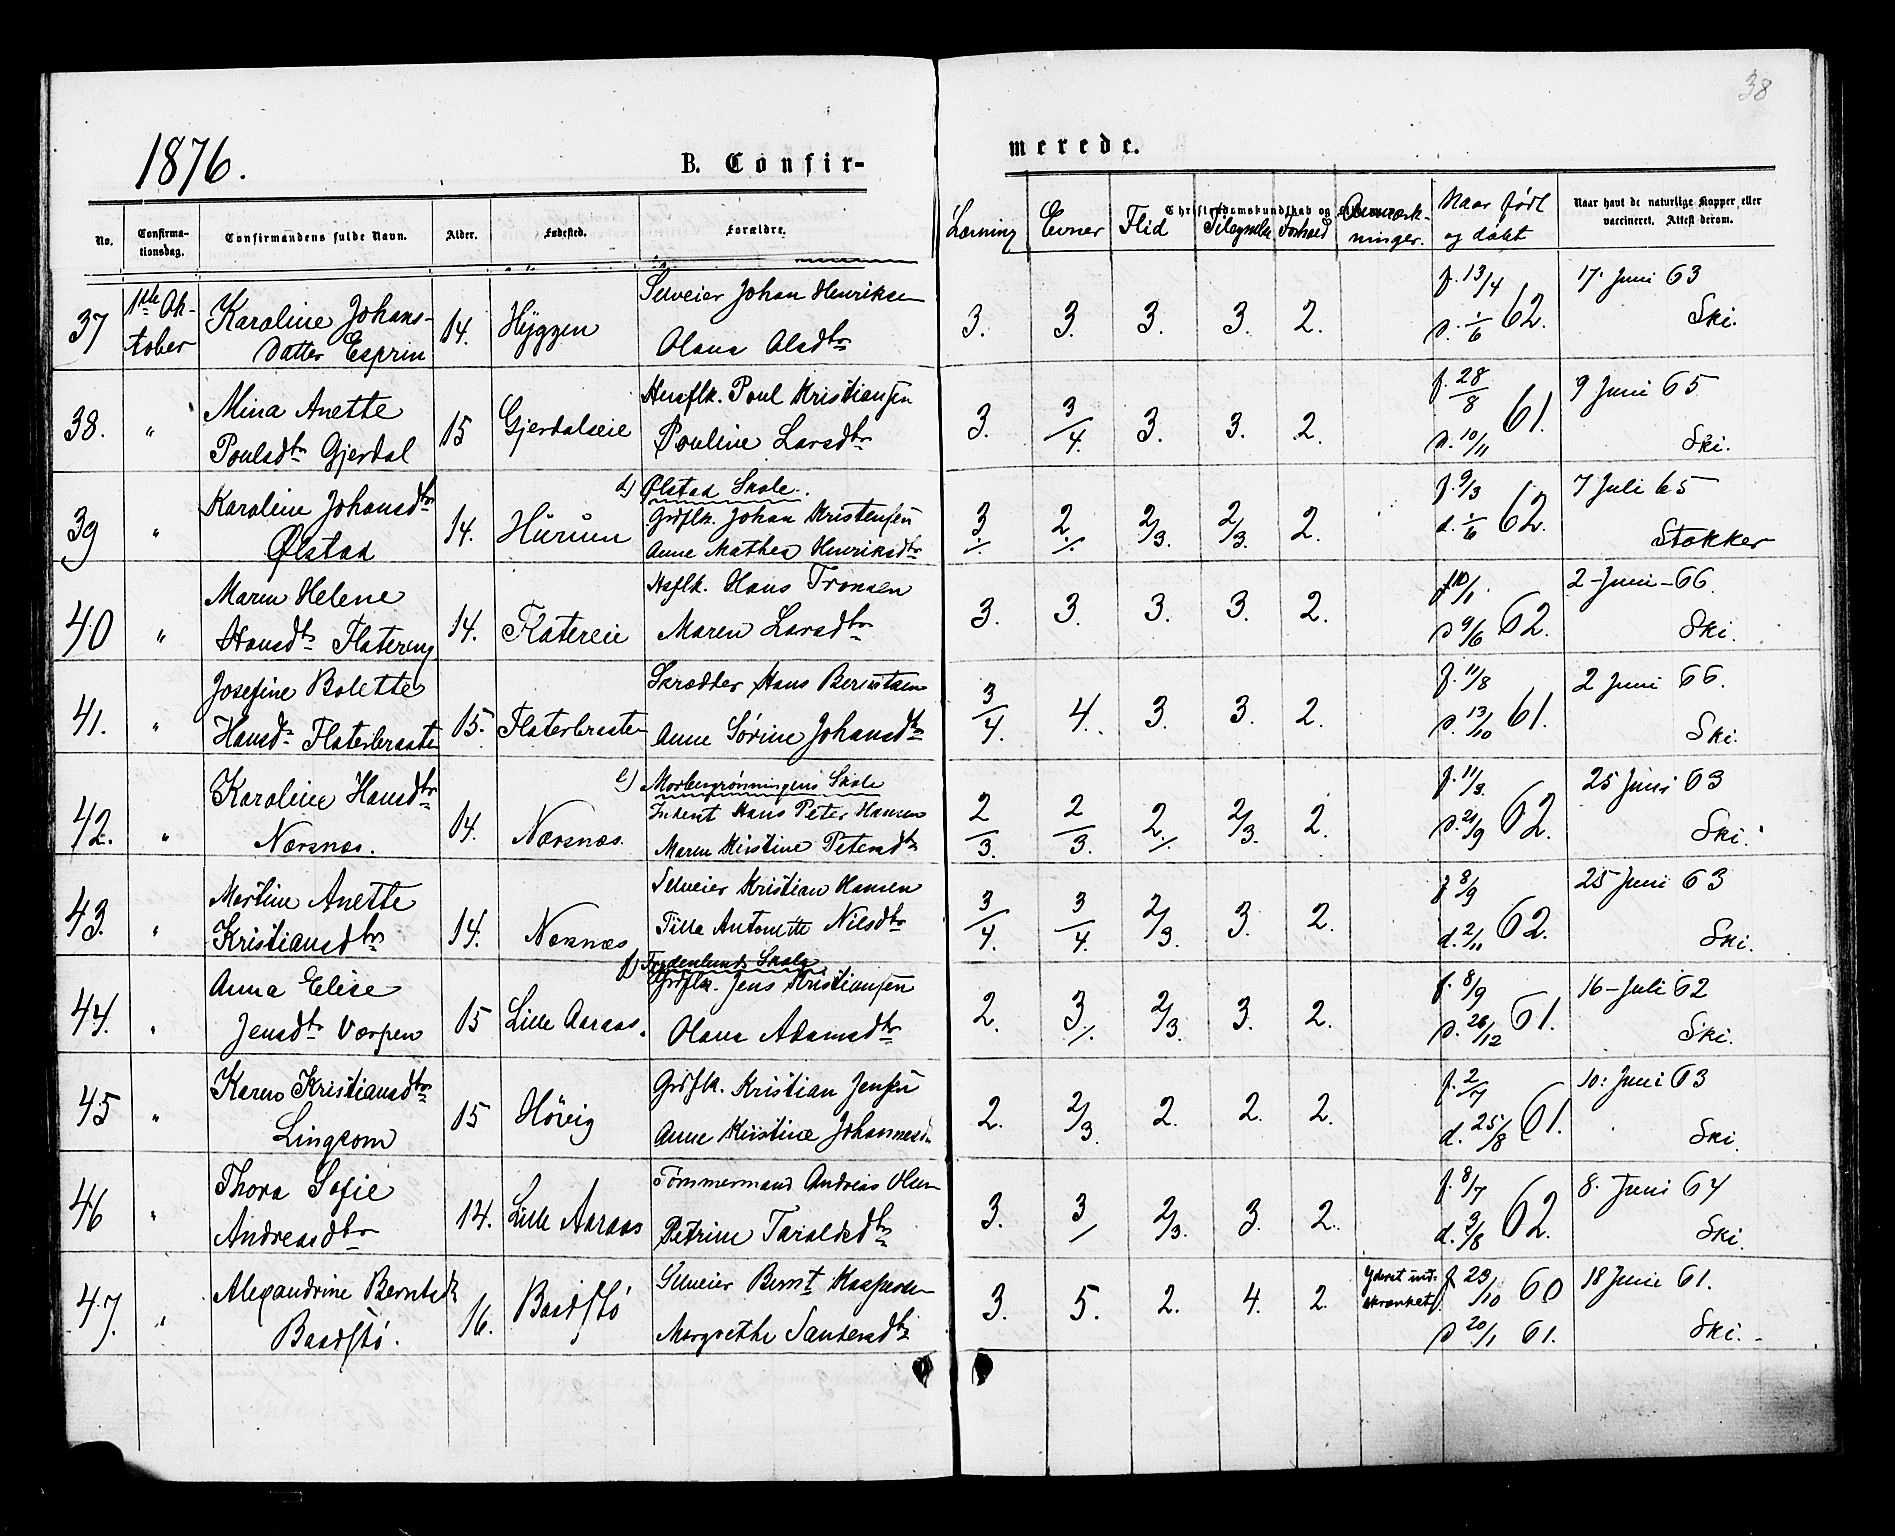 38
1876.
B. Confir-
merede.
No. Confirma-tionsdag. Confirmandens fulde Navn. Alder. Fødested. Forældre. Læsning Evner Flid Christendomskundskab og Tilegnelse Forhold Anmærk-ninger. Naar født og døbt Naar havt de naturlige Kopper eller vaccineret. Attest derom.
37 1ste Ok- Karoline Johans- 14. Hyggen Selveier Johan Henriksen 3. 3. 3. 3. 2. f. 13/4 62. 17. Juni 63
tober Datter Esprim Olana Olsdtr d. 1/6 Ski.
38. " Mina Anette 15 Gjerdalseie Husflk. Poul Kristiansen 3. 3/4. 3. 3. 2. f. 28/8 61. 9 Juni 65
Poulsdtr Gjerdal Pouline Larsdtr d. 10/11 Ski.
d) Ølstad Skole.
39 " Karoline Johansdtr 14. Hurum Grdflk. Johan Kristensen 3/. 2/. 2/3. 2/3. 2. f. 9/3 62. 7 Juli 65
Ølstad Anne Mathea Henriksdtr d. 1/6 Stokker
40 " Maren Helene 14. Flatereie Hsflk. Hans Tronsen 3. 3. 3. 3. 2. f 10/1. 62. 2-Juni-66.
Hansdtr Flatereng Maren Larsdtr d 9/6 Ski.
41. " Josefine Bolette 15. Flaterbraaten Skrædder Hans Berntsen 3/4. 4. 3. 3. 2. f. 11/8 61. 2 Juni 66.
Hansdtr Flaterbraaten Anne Sørine Johansdtr d. 13/10 Ski.
e) Morbergrønningens Skole
42. " Karoline Hansdtr 14. Nærsnæs. Inderst Hans Peter Hansen 2/3. 2/3. 2/. 2/3. 2. f. 11/3. 62. 25 Juni 63
Nærsnæs. Maren Kirstine Petersdtr d. 21/9 Ski.
43. " Martine Anette 14. Nærsnæs Selveier Kristian Hansen 3/4. 3/4. 2/3. 3. 2. f 8/9 62. 25 Juni 63
Kristiansdtr Tilla Antonette Nilsdtr d. 2/11 Ski.
f) Frydenlunds Skole
44. " Anna Elise 15 Lille Aaraas. Grdflk. Jens Kristiansen 2. 3/. 2/3. 3. 2. f. 8/9 61. 16-Juli 62
Jensdtr Værpen Olava Adamsdtr d. 26/12 Ski.
45 " Karen Kristiansdtr 15 Høvig Grdflk. Kristian Jensen 2. 2/3. 2. 2. 2. f. 2/7 61. 10: Juni 63
Lingsom Anne Kirstine Johannesdtr d. 25/8 Ski.
46 " Thora Sofie 14. Lille Aaraas Tømmermand Andreas Olsen 3. 3/ 2/3. 3. 2. f. 8/7 62. 8. Juni 64
Andreasdtr Petrine Taraldsdtr d. 3/8 Ski.
47. " Alexandrine Berntsdtr 16. Baadstø Selveier Bernt Kaspersen 3. 5. 2. 4. 2. Yderst ind-skrænket. f. 23/10 60 18 Juni 61.
Baadstø. Margrethe Santersdtr d 20/1 61. Ski.